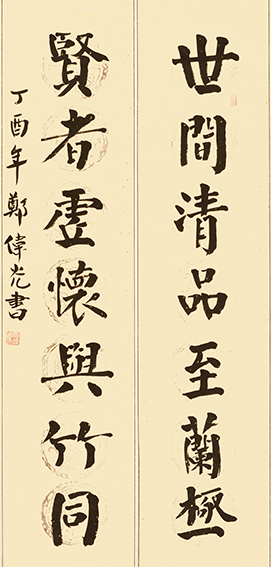 世間清品至蘭極
賢者虛懷與竹同
丁酉年鄭偉光書